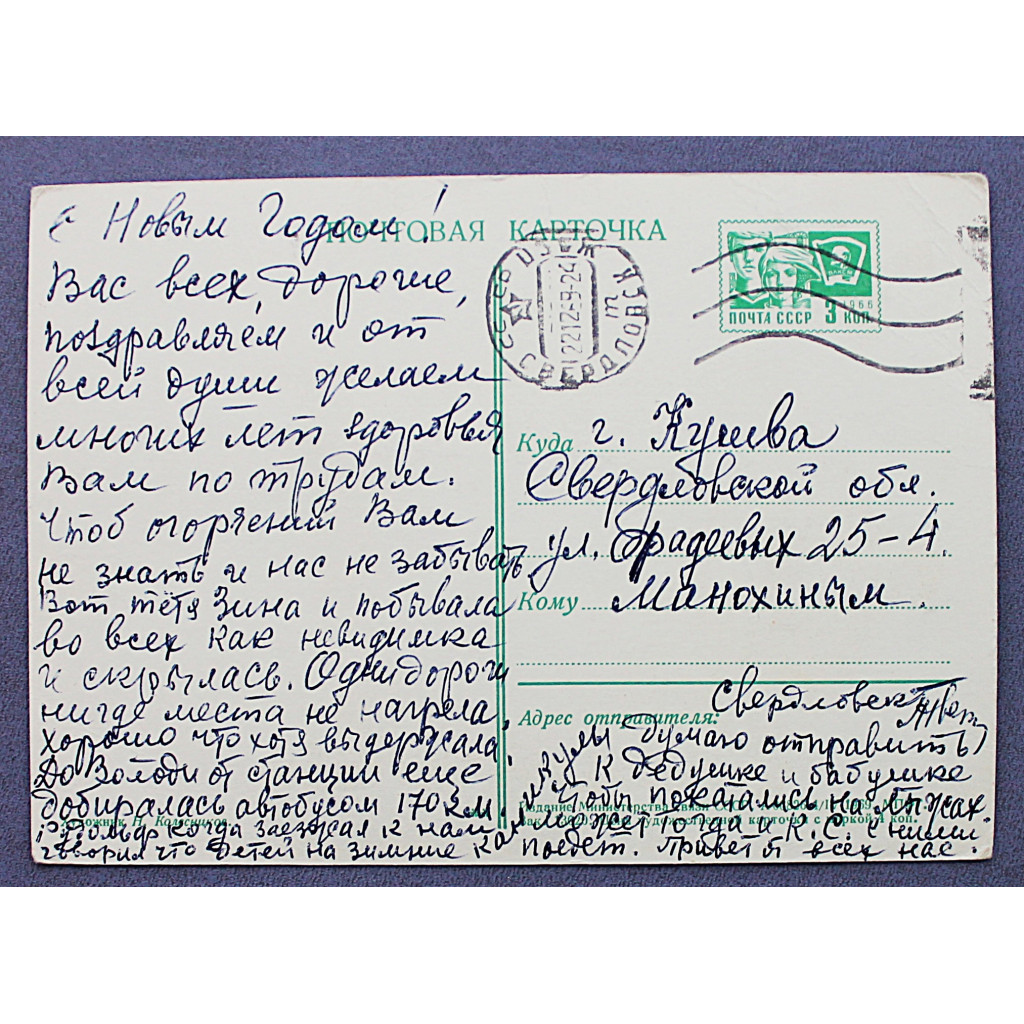 с Новым Годом!
Вас всех, дорогие,
поздравляем и от
всей души желаем
многих лет здоровья
Вам по трудам.
Чтоб огорчений Вам
не знать и нас не забывать
Вот тётя Зина и побывала
во всех как невидимка
и скрылась. Одни дороги
нигде места не нагрела,
хорошо что хотя выдержала.
До Володи от станции еще
добиралась автобусом 170 км
Вольдр когда заезжал к нам
говорил что детей на зимние каникулы
думаю отправить
к дедушке и бабушке
чтобы покатались на лыжах
может тогда и К.С. с ними
поедет. Привет от всех нас.
ПОЧТОВАЯ КАРТОЧКА
СССР СВЕРДЛОВСК
22 12 69-24
1966
ПОЧТА СССР 3 КОП
ВЛКСМ
Куда г. Кушва
Свердловской обл.
ул. Фадеевых 25-4.
Кому Манохиным.
Свердловск
Адрес отправителя:
Издание Министерства связи СССР
художественной карточки с маркой 4 коп.
Художник Н. Колесников